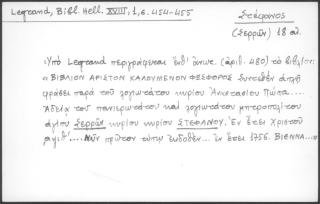 Legrand, Bibl. Hell. XVIII, 1, σ. 454-455
Στέφανος
(Σερρῶν) 18 αἰ.
Ὑπὸ Legrand περιγράφεται ἐνθ' ἀνωτ. (ἀριθ. 480) τὸ βιβλίον:
"ΒΙΒΛΙΟΝ ΑΡΙΣΤΟΝ ΚΑΛΟΥΜΕΝΟΝ ΦΩΣΦΟΡΟΣ συντεθὲν ἁπλῇ
φράσει παρὰ τοῦ λογιωτάτου κυρίου Ἀναστασίου
Ἀδείᾳ τοῦ πανιερωτάτου καὶ λογιωτάτου μητροπολίτου
ἁγίου Σερρῶν κυρίου κυρίου ΣΤΕΦΑΝΟΥ. Ἐν ἔτει Χριστοῦ
.... Νῦν πρῶτον τύπῳ ἐκδοθὲν... ἐν ἔτει 1756. ΒΙΕΝΝΑ...."